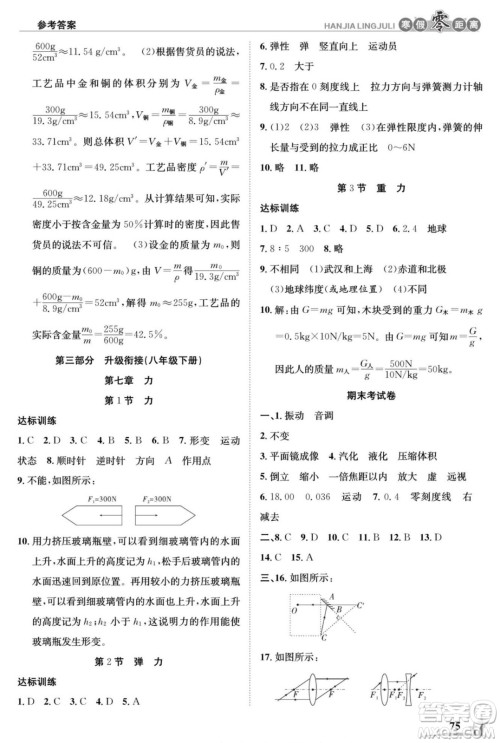 参考答案
HANJIA LINGJULI 寒假零距离
600g/19.3g/cm³≈11.54 g/cm³。(2)根据售货员的说法,工
艺品中金和铜的体积分别为 V金=m/ρ=
300g/19.3g/cm³≈15.54 g/cm³,V铜=m/ρ=300g/8.9g/cm³≈
33.71cm³。工艺品的体积 V=V金+V铜=15.54cm³
+33.71cm³=49.25cm³;工艺品的密度 ρ′=m/ρ=
600g/49.25cm³≈12.18g/cm³。从计算结果可知,实际
密度小于按含金量为50%计算时的密度,因此,售
货员的说法不可信。(3)设金的质量为 m0,则
铜的质量为(600-m0)g,根据V=m/ρ有:m0/19.3g/cm³
+600g-m0/8.9g/cm³=50cm³,解得 m0≈255g,工艺品的
实际含金量为m0/m=255g/600g=42.5%。
第三部分 升级衔接(八年级下册)
第七章 力
第1节 力
达标训练
1. C 2. D 3. C 4. D 5. D 6. B 7. 形变 运动
状态 8. 顺时针 逆时针 方向 大小 作用点
9. 不能,如图:
F₁=300N F₂=300N
10. 用力挤压玻璃瓶壁,可以看到细玻璃管内的水面
上升,水面上升的高度记为 h1,松手后玻璃瓶内水
面迅速回到原位置。用相对较小的力挤压玻璃瓶
壁,可以看到细玻璃管内的水面上升,上升的高度
记为 h2;h2 小于 h1,说明力的作用能使
玻璃瓶发生形变。
第2节 弹力
达标训练
1. D 2. C 3. D 4. A 5. C
6. 弹性 弹 竖直向上 运动员
7. 0.2 大于
8. 是否指在0刻度线上 拉力方向与弹簧测力计轴
线方向不在同一直线上
9. (1)2 (2)3 弹性 (3)在弹性限度内,弹簧的伸
长量与受到的拉力成正比 0～6N
10. 略 11. 略
第3节 重力
达标训练
1. B 2. D 3. C 4. C 5. D 6. 2.4 地球
7. 8∶5 300 8. 略
9. 不相同 (1)武汉和上海 (2)赤道和北极
(3)地球纬度(或地理位置)
10. 解:由 G=mg 可求,木块受到的重力 G木=m木g
=0.5kg×10N/kg=5N。由 G=mg,可知 m=G/g,
因此人的质量为 m人=G人/g=500N/10N/kg=50kg。
期末考试卷
一、1. 振动 音调
2. 不变
3. 平面镜成像 4. 汽化 液化 压缩体积
5. 倒立 缩小 一倍焦距 远视 凸透镜
6. 18.00 0.036 运动 7. 零刻度线 右
减去
二、8. C 9. C 10. C 11. D 12. C 13. A
14. C 15. A
三、16. 如图所示:
O P C
17. 如图所示:
F F F F
75